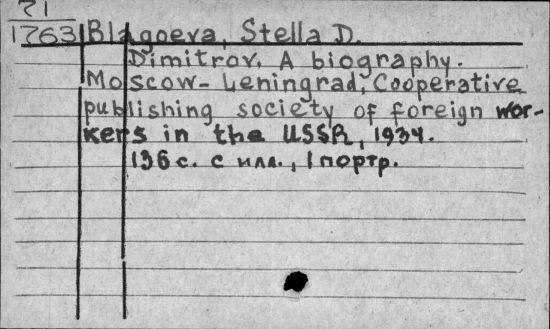 71
1763 Blagoeva, Stella D.
Dimitrov. A biography.
Moscow-Leningrad, Cooperative
publishing society of foreign wor-
kers in the USSR, 1934.
136 с. с илл., 1 портр.